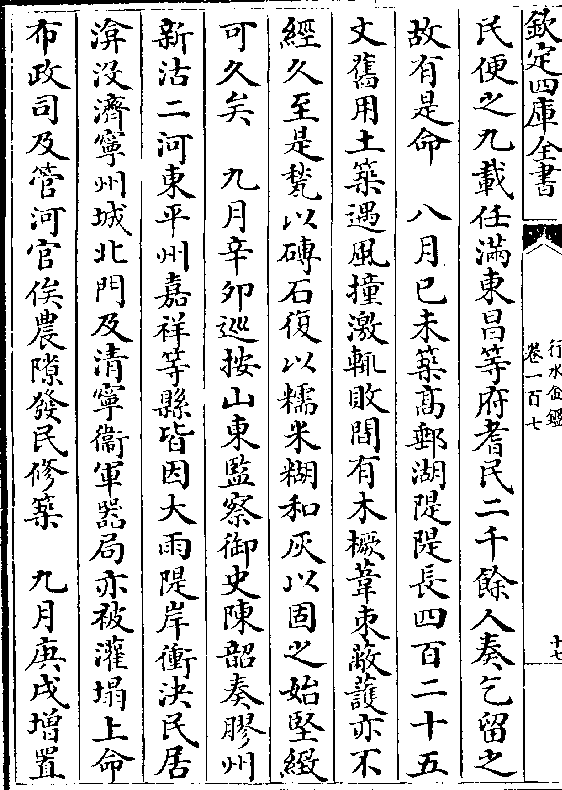 欽定四庫全書
行水金鑑
卷一百七
十七
民便之九載任滿東昌等府耆民二千餘人奏乞留之
故有是命　八月己未築高郵湖隄隄長四百二十五
丈舊用土築遇風撞激輒敗間有木橛葦束蔽護亦不
經久至是甃以磚石復以糯米糊和灰以固之始堅緻
可久矣　九月辛卯巡按山東監察御史陳韶奏膠州
新沽二河東平州嘉祥等縣皆因大雨隄岸衝決民居
渰没濟寧州城北門及清寧衞軍器局亦被灌塌上命
布政司及管河官俟農隙發民修築　九月庚戌增置